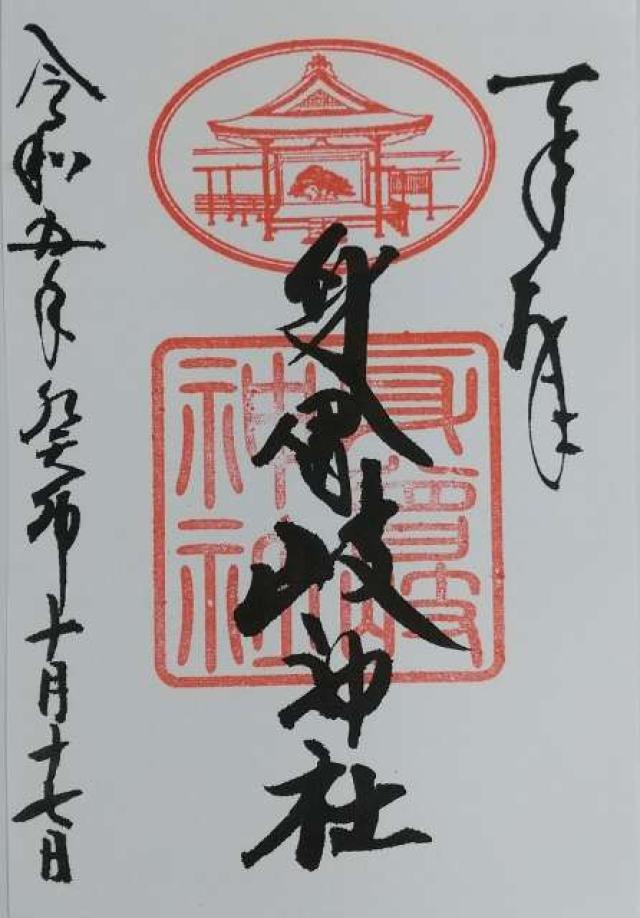 奉拝
身曾岐神社
身曾岐神社
令和五年癸卯十月十七日